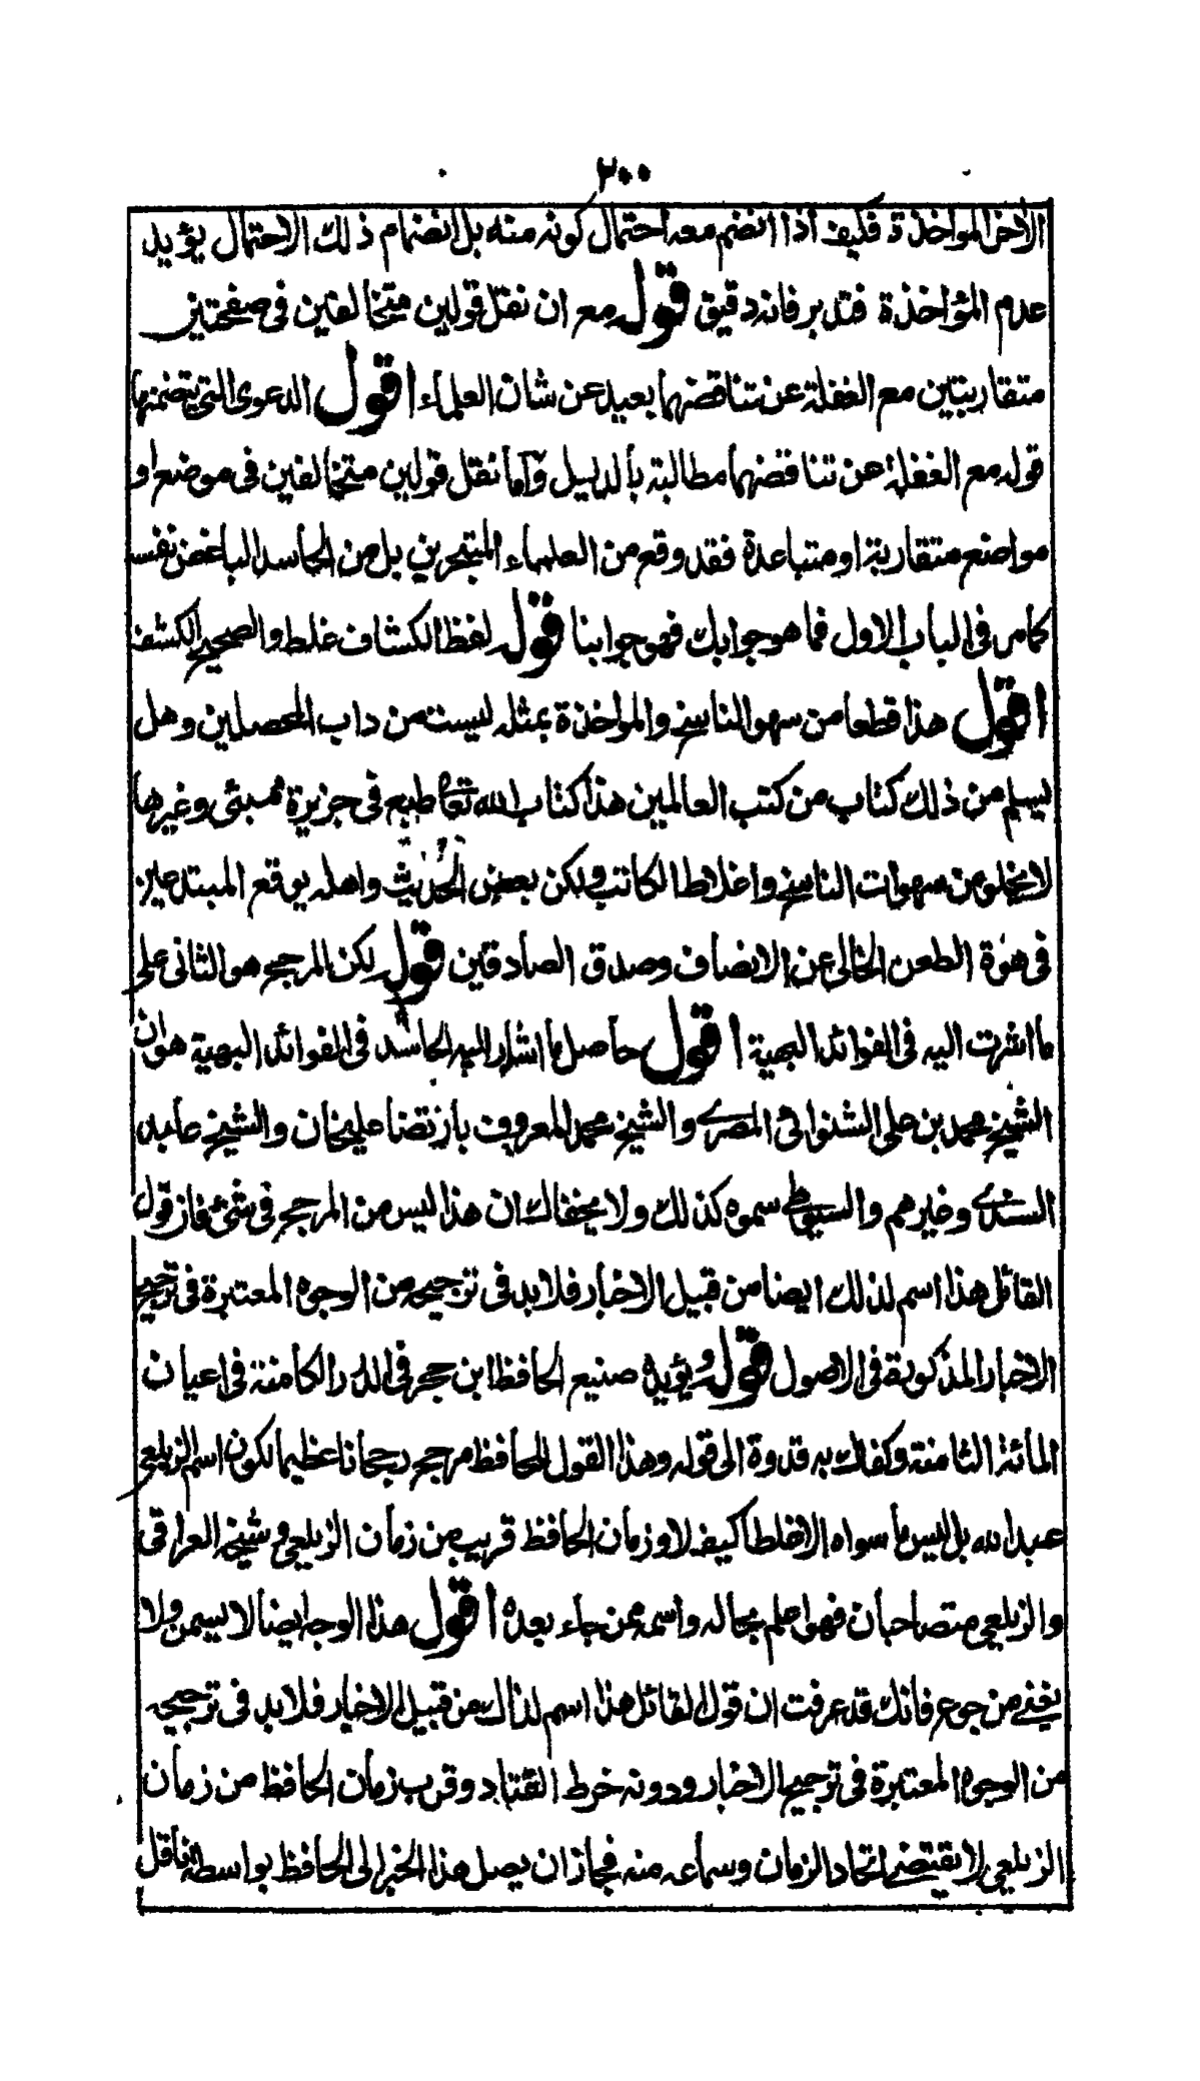 ٢٠٠
الاخر المواخذة فكيف اذا انضم معه احتمال كونه منه بل انضمام ذلك الاحتمال يؤيد
عدم المؤاخذة فتدبر فانه دقيق قوله مع ان نقل قولين متخالفين فى صفحتين
متقاربتين مع الغفلة عن تناقضهما بعيد عن شان العلماء اقول الدعوى التى يتضمنها
قوله مع الغفلة عن تناقضهما مطالبته بالدليل واما نقل قولين متخالفين فى موضع او
مواضع متقاربة او متباعدة فقد وقع من العلماء المتبحرين بل من الحاسد الباغض نفسه
كما مر فى الباب الاول فما هو جوابك فهو جوابنا قوله لفظ الكشاف غلط والصحيح الكشف
اقول هذا قطعا من سهو الناسخ والمواخذة بمثله ليست من داب المحصلين وهل
يسلم من ذلك كتاب من كتب العالمين هذا كتاب الله تعا طبع فى جزيرة بمبئى وغيرها
لا يخلو من سهوات الناسخ واغلاط الكاتب ولكن بعض الحديث واهله يوقع المبتدعين
فى هوة الطعن الخالى عن الانصاف وصدق الصادقين قوله لكن المرجح هو الثانى على
ما اشرت اليه فى الفوائد البهية اقول حاصل ما اشار اليه الحاسد فى الفوائد البهية هو ان
الشيخ محمد بن على الشنوائى المصرى والشيخ محمد المعروف بارتضا عليخان والشيخ عابد
السندى وغيرهم والسيوطى سموه كذلك ولا يخفاك ان هذا ليس من المرجح فى شئ فان قول
القائل هذا اسم لذلك ايضا من قبيل الاخبار فلا بد فى ترجيحه من الوجوه المعتبرة فى ترجيح
الاخبار المذكورة فى الاصول قوله ويؤيده صنيع الحافظ ابن حجر فى الدرر الكامنة فى اعيان
المائة الثامنة وكفاك به قدوة الى قوله وهذا القول للحافظ مرجح رجحانا عظيما لكون اسم الزيلعى
عبد الله بل ليس ما سواه الا غلطا كيف لا وزمان الحافظ قريب من زمان الزيلعى وشيخه العراقى
والزيلعى متصاحبان فهو اعلم بحاله واسمه ممن جاء بعده اقول هذا الوجه ايضا لا يسمن ولا
يغنى من جوع فانك قد عرفت ان قول القائل هذا اسم لذاك من قبيل الاخبار فلا بد فى ترجيحه
من الوجوه المعتبرة فى ترجيح الاخبار ودونه خرط القتاد وقرب زمان الحافظ من زمان
الزيلعى لا يقتضى اتحاد الزمان وسماعه منه فجاز ان يصل هذا الخبر الى الحافظ بواسطة ناقل